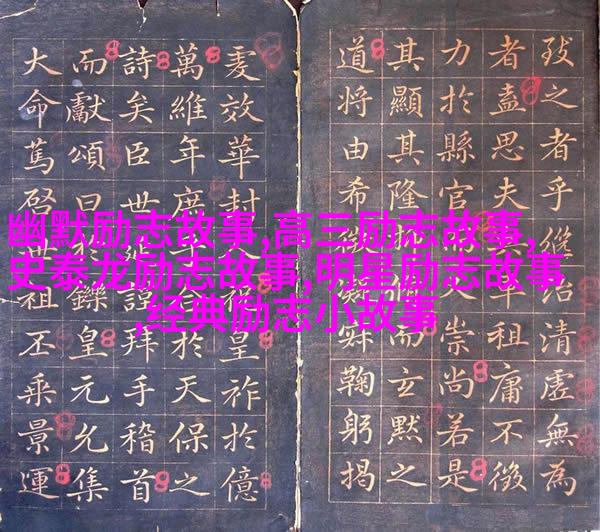 幽默励志故事,高三励志故事,
史泰龙励志故事,明星励志故事
,经典励志小故事
之者乎治清虛無為
者盍思夫祖庸不徵
力於縣官崇尚若是
其顯其隆而玄默之
道將由希鞠躬揭
效華封皇祚於億
萬維年庶於天保之
詩矣臣世延謹拜手稽首
而獻頌曰於鑠皇元允集
大命篤啓世祖丕乘景運